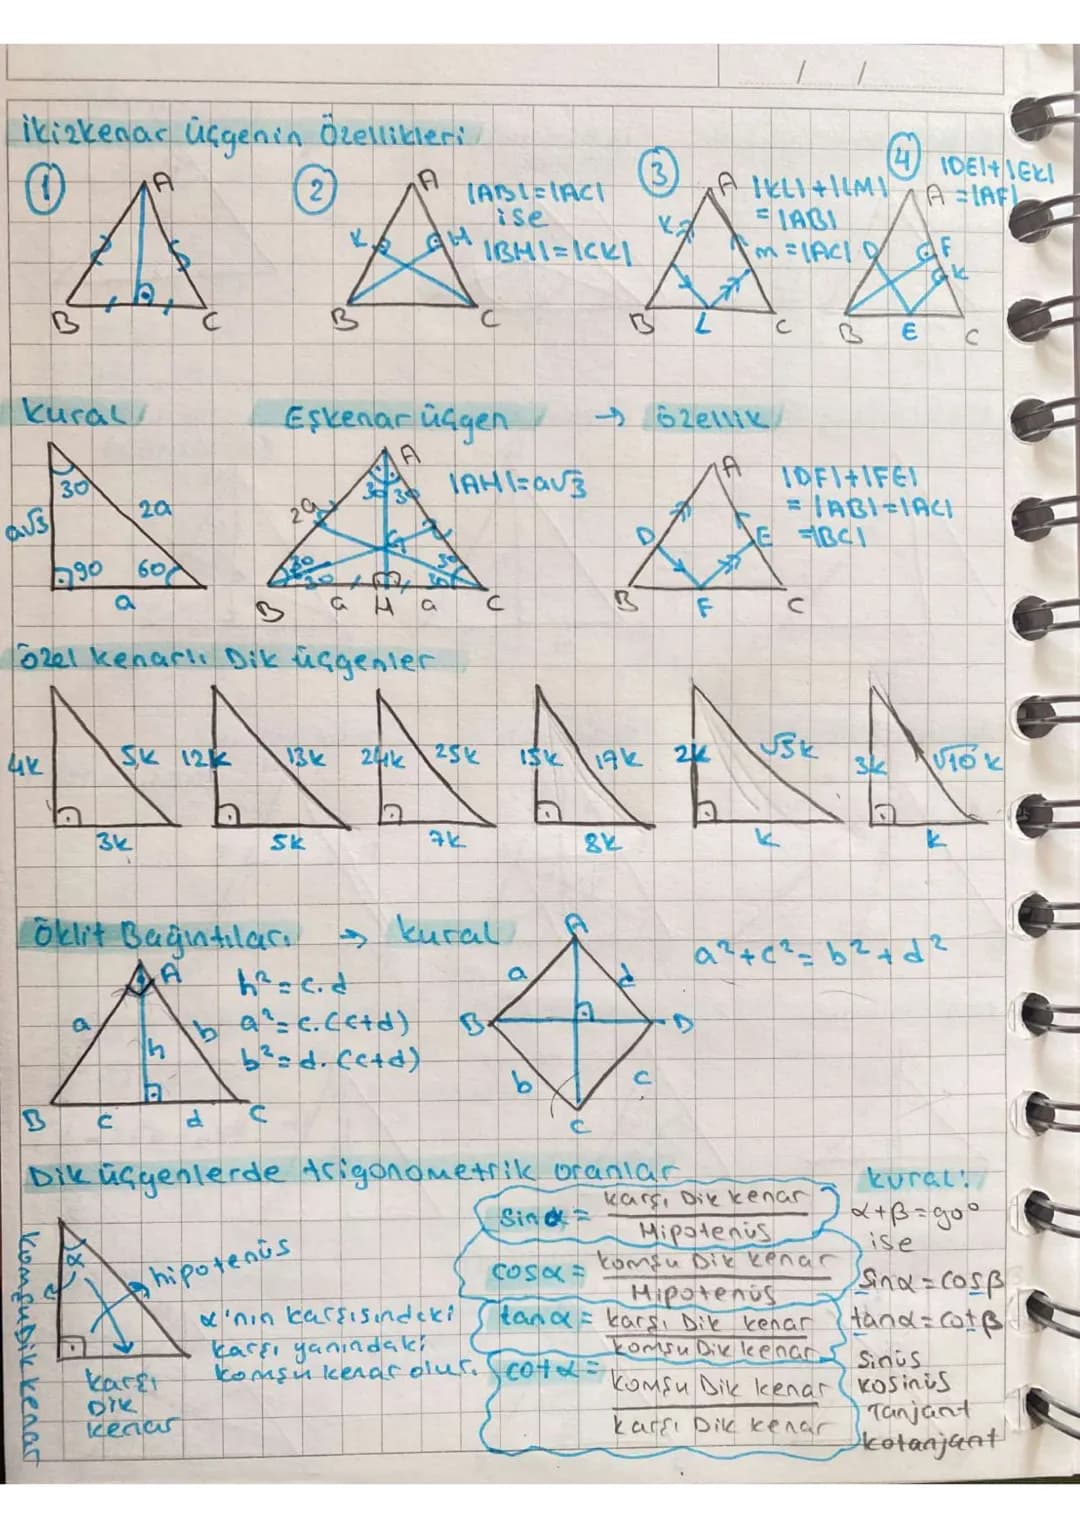 / /
İkizkenar üçgenin Özellikleri
1
A
B
C
2
A
K
H
B
C
|AB|=|AC|
ise
|BH|=|CK|
3
A
K
m
B
L
C
|KL|+|LM|
=|AB|
=|AC|
4
A
D
F
K
B
E
C
|DE|+|EK|
=|AF|
Kural
30
a√3
2a
90
60
a
Eşkenar üçgen
A
|AH|=a√3
30
30
2a
G
30
30
30
30
B
a
H
a
C
→ özellik
A
D
E
B
F
C
|DF|+|FE|
=|AB|=|AC|
=|BC|
Özel kenarlı Dik üçgenler
4k
5k
3k
12k
13k
5k
24k
25k
7k
15k
17k
8k
2k
√5k
k
3k
√10 k
k
Öklit Bağıntıları
A
a
b
h
B
c
d
C
h²=c.d
a²=c.(c+d)
b²=d.(c+d)
→ kural
A
a
d
B
D
b
c
C
a²+c²=b²+d²
Dik üçgenlerde trigonometrik oranlar
α
hipotenüs
Komşu Dik kenar
karşı
Dik
kenar
α'nın karşısındeki
karşı yanındaki
komşu kenar olur.
sinα = karşı Dik kenar
Hipotenüs
cosα = komşu Dik kenar
Hipotenüs
tanα = karşı Dik kenar
komşu Dik kenar
cotα =
komşu Dik kenar
karşı Dik kenar
kural:
α+β=90°
ise
Sinα=cosβ
tanα=cotβ
Sinüs
kosinüs
Tanjant
kotanjant